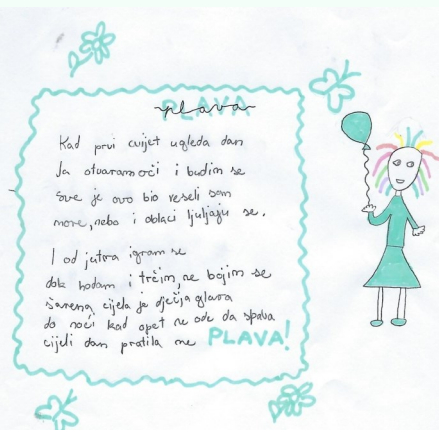 plava
Kad prvi cvijet ugleda dan
Ja otvaram oči i budim se
Sve je ovo bio veseli san
more, nebo i oblaci ljuljaju se.
I od jutra igram se
dok hodam i trčim, ne bojim se
šarena cijela je dječja glava
do noći kad opet ne ode da spava
cijeli dan pratila me PLAVA!